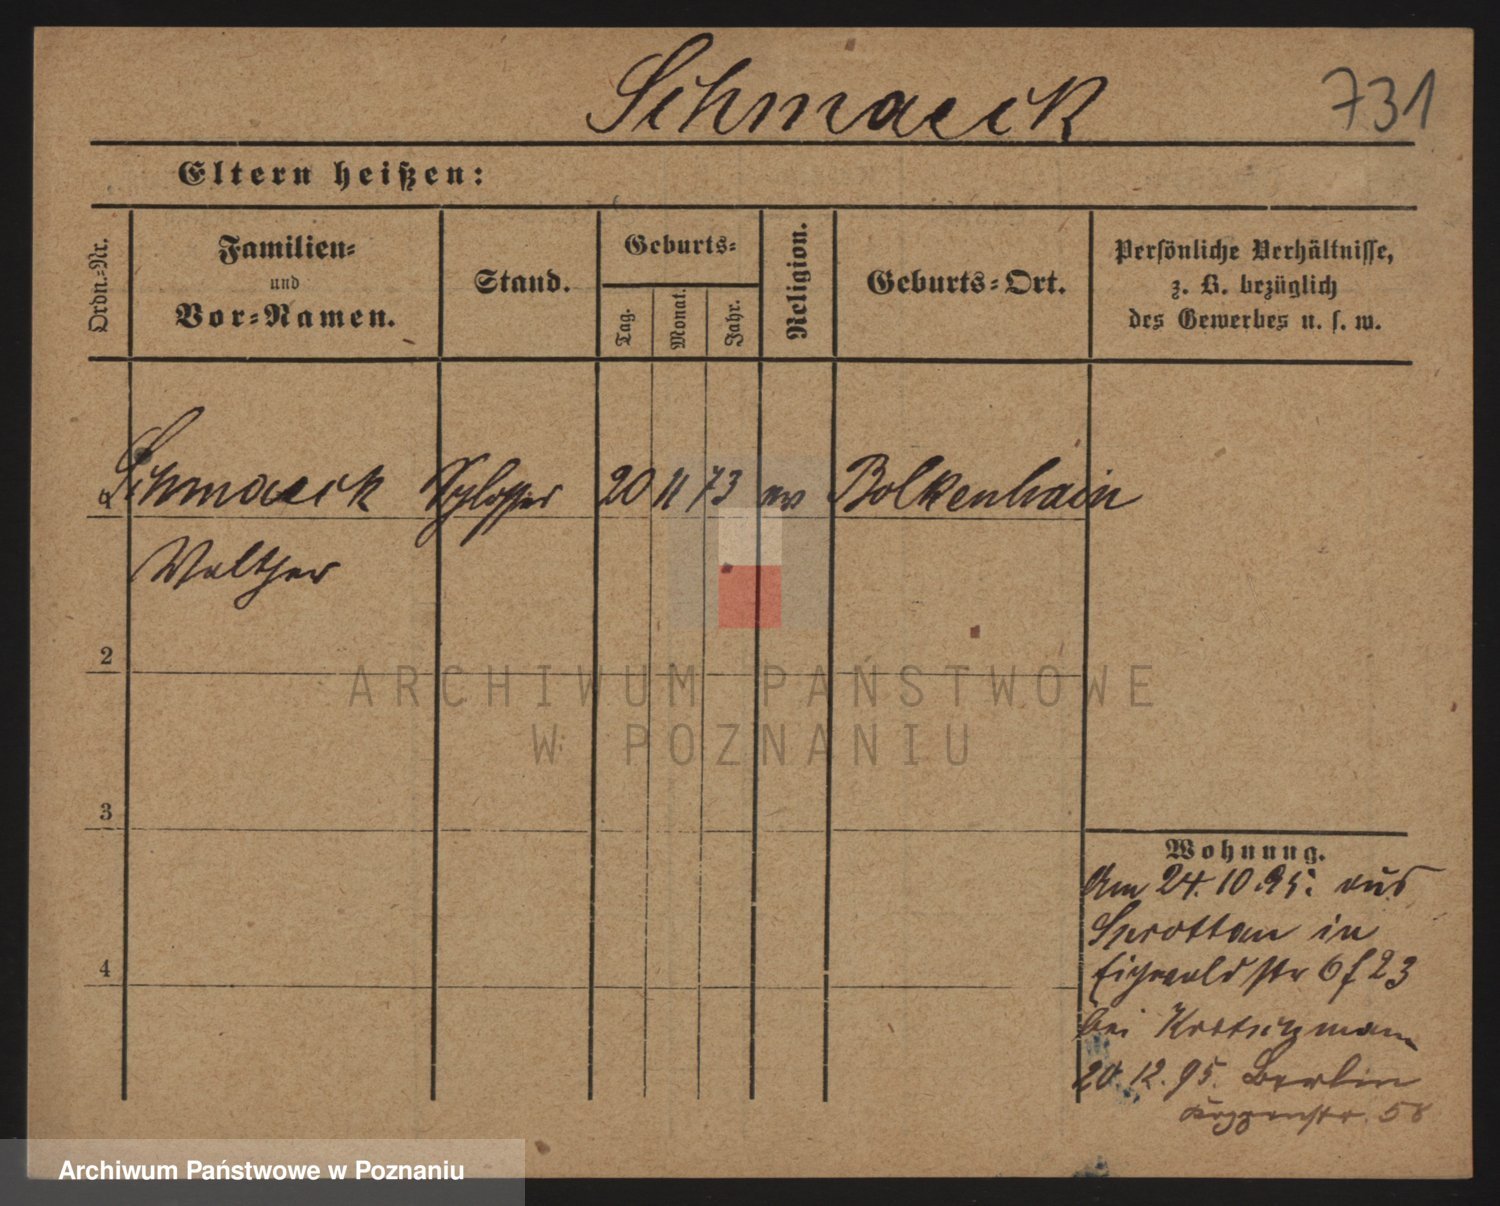 Schmaeck
731
Eltern heißen:
Ordn.-Nr.
Familien-
und
Vor-Namen.
Stand.
Geburts-
Tag.
Monat.
Jahr.
Religion.
Geburts-Ort.
Persönliche Verhältnisse,
z. B. bezüglich
des Gewerbes u. s. w.
Schmaeck Schlosser 20 11 73 ev Bolkenhain
Walther
2
3
4
Wohnung.
Am 24. 10. 95. aus
Sprottau in
Eichwaldstr 6 f 23
bei
20. 12. 95. Berlin
58
ARCHIWUM PAŃSTWOWE
W POZNANIU
Archiwum Państwowe w Poznaniu